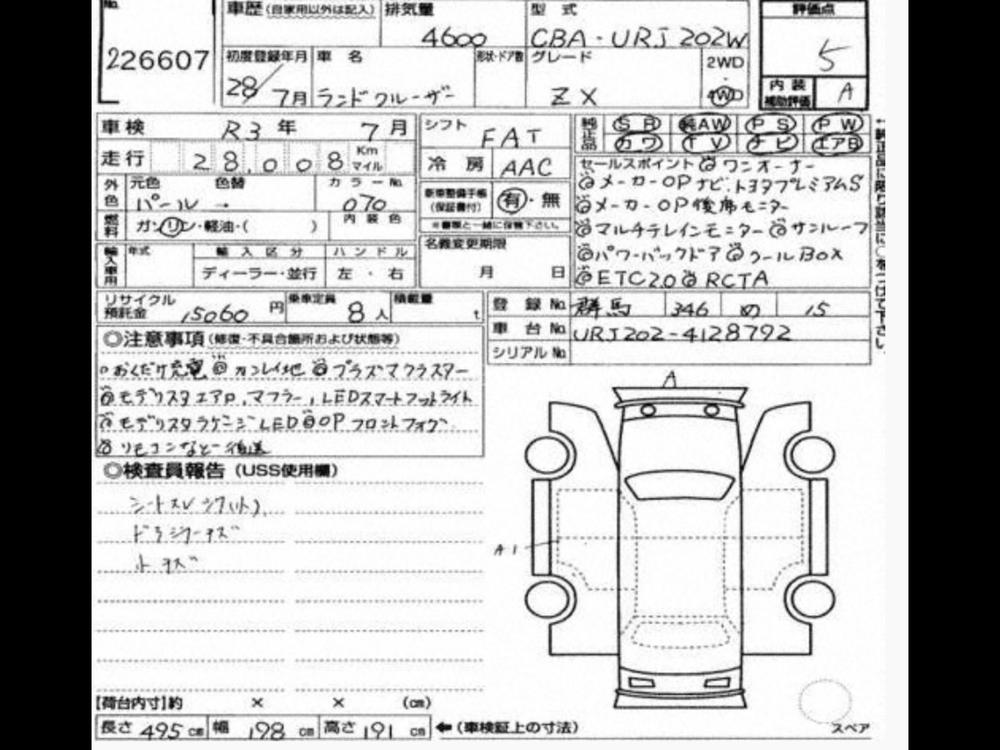 No. 車歴 (自家用以外は記入) 排気量 型式 評価点
226607 4600 CBA-URJ202W 5
初度登録年月 車名 形状・ドア数 グレード 2WD
28/7月 ランドクルーザー ZX 4WD
内装補助評価 A
車検 R3年 7月 シフト FAT 純正品 SR 純AW PS PW
カワ TV ナビ エアB
走行 28,008 Km マイル 冷房 AAC
セールスポイント ◎ワンオーナー
◎メーカーOPナビ.トヨタプレミアムS
◎メーカーOP後席モニター
◎マルチテレインモニター ◎サンルーフ
◎パワーバックドア ◎クールBOX
◎ETC2.0 ◎RCTA
外色 元色 色替 カラーNo.
パール → 070
新車整備手帳(保証書付) 有・無
※書類と一緒に保管下さい。
燃料 ガソリン・軽油・( ) 内装色
名義変更期限
月 日
輸入車用 年式 輸入区分 ハンドル
ディーラー・並行 左・右
リサイクル預託金 15060円 乗車定員 8人 積載量 t
登録No. 群馬 346 め 15
車台No. URJ202-4128792
シリアルNo.
◎注意事項 (修復・不具合箇所および状態等)
◦おくだけ充電 ◎カンレイ地 ◎プラズマクラスター
◎モデリスタエアロ,マフラー,LEDスマートフットライト
◎モデリスタラゲージLED ◎OPフロントフォグ
◎リモコンなど一後送
◎検査員報告 (USS使用欄)
シートスレ
キズ
小キズ
A
A1
【荷台内寸】約 × × (cm)
長さ 495 cm 幅 198 cm 高さ 191 cm ← (車検証上の寸法)
スペア